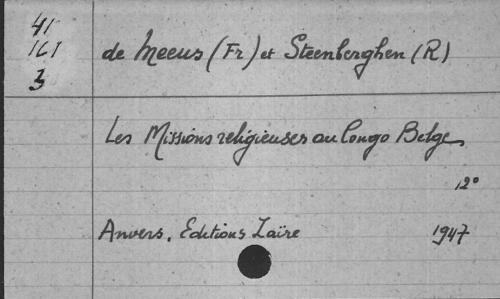 41
161
3
de Meeus (Fr) et Steenberghen (R)
Les Missions religieuses au Congo Belge
12°
Anvers, Editions Zaïre 1947